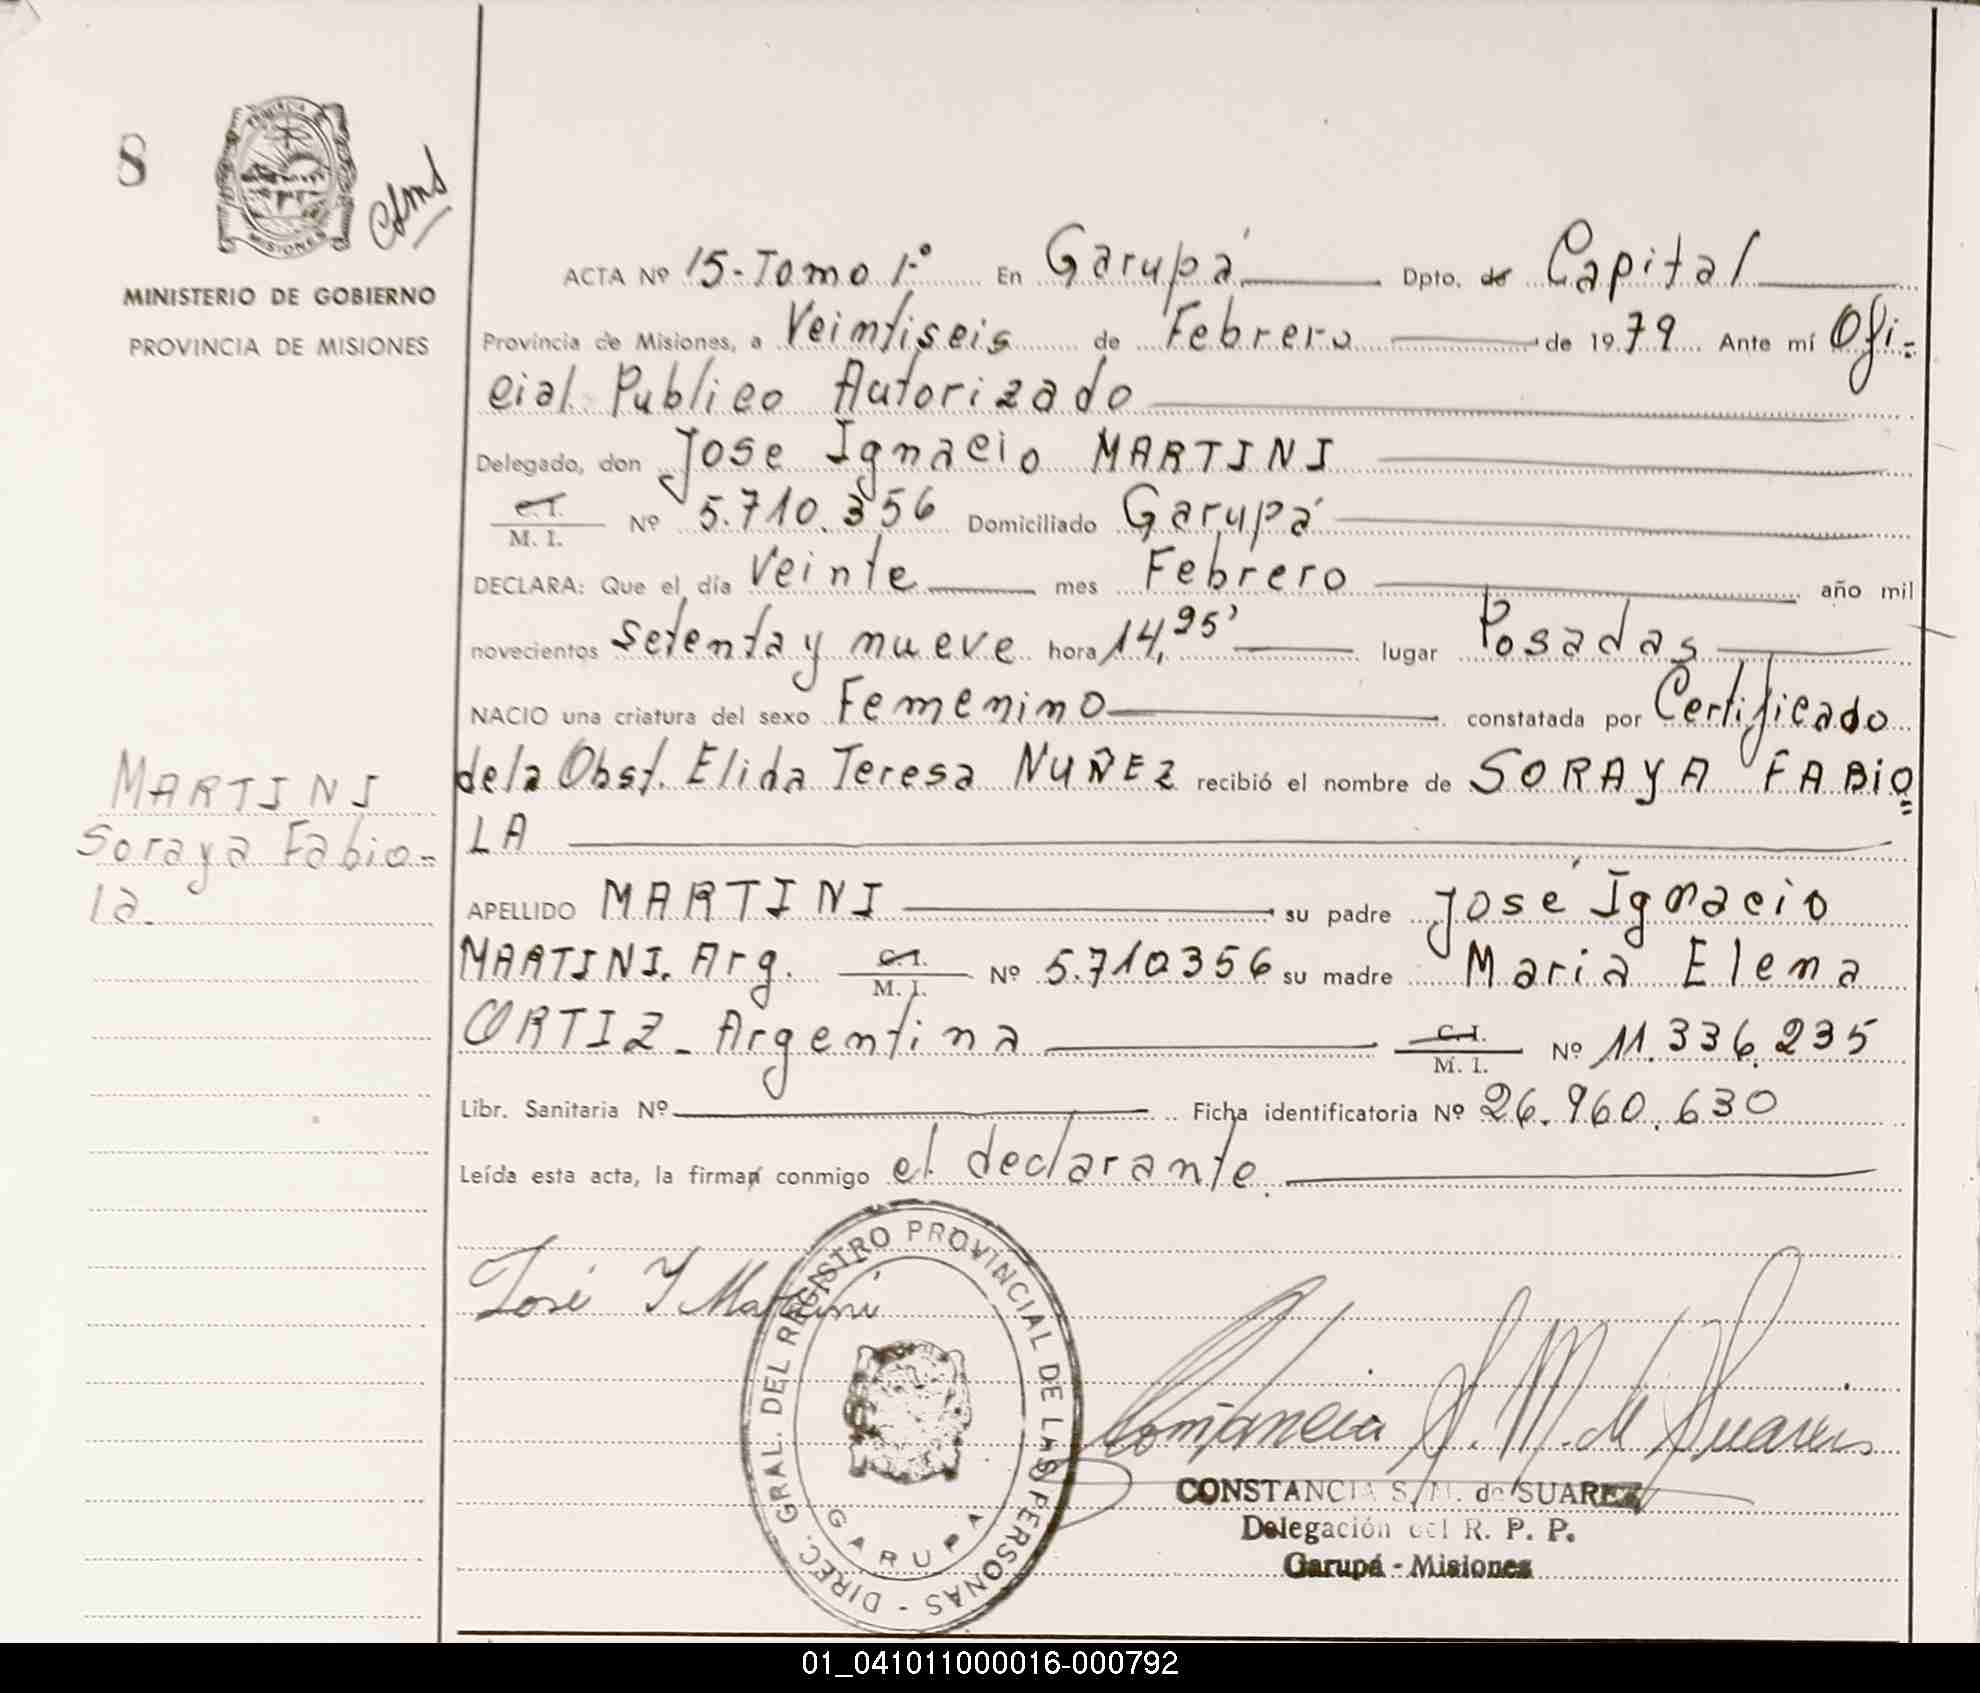 8
PROVINCIA
MISIONES
MINISTERIO DE GOBIERNO
PROVINCIA DE MISIONES
ACTA Nº 15-Tomo 1.º En Garupá Dpto. de Capital
Provincia de Misiones, a Veintiseis de Febrero de 1979 Ante mí Ofi-
cial Publico Autorizado
Delegado, don Jose Ignacio MARTINI
C.I.
M. I. Nº 5.710.356 Domiciliado Garupá
DECLARA: Que el día Veinte mes Febrero año mil
novecientos setenta y nueve hora 14,25' lugar Posadas
NACIO una criatura del sexo Femenino constatada por Certificado
de la Obst. Elida Teresa NUÑEZ recibió el nombre de SORAYA FABIO=
LA
MARTINI
Soraya Fabio-
la.
APELLIDO MARTINI su padre José Ignacio
MARTINI. Arg. C.I. M. I. Nº 5.710356 su madre Maria Elena
ORTIZ - Argentina C.I. M. I. Nº 11.336.235
Libr. Sanitaria Nº Ficha identificatoria Nº 26.960.630
Leída esta acta, la firman conmigo el declarante.
José Y Martini
DIREC. GRAL. DEL REGISTRO PROVINCIAL DE LAS PERSONAS -
GARUPA
Constancia S. M. de Suarez
CONSTANCIA S. M. de SUAREZ
Delegación del R. P. P.
Garupá - Misiones
01_041011000016-000792